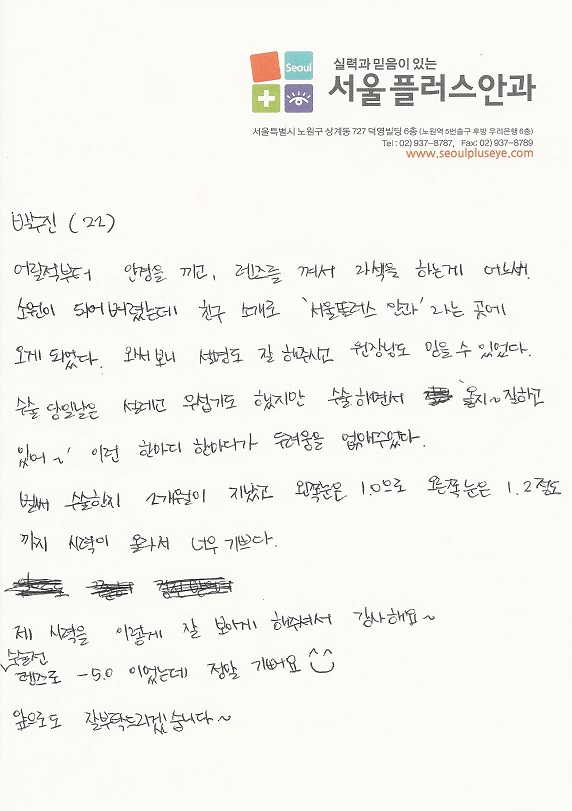 Seoul
실력과 믿음이 있는
서울플러스안과
서울특별시 노원구 상계동 727 덕영빌딩 6층 (노원역 5번출구 후방 우리은행 6층)
Tel : 02) 937-8787, Fax: 02) 937-8789
www.seoulpluseye.com
박수진 (22)
어릴적부터 안경을 끼고, 렌즈를 껴서 라섹을 하는게 어느새
소원이 되어버렸는데 친구 소개로 '서울플러스 안과' 라는 곳에
오게 되었다. 와서 보니 설명도 잘 해주시고 원장님도 믿을 수 있었다.
수술 당일날은 설레고 무섭기도 했지만 수술 해면서 '옳지~ 잘하고
있어~' 이런 한마디 한마디가 두려움을 없애주었다.
벌써 수술한지 2개월이 지났고 왼쪽눈은 1.0으로 오른쪽눈은 1.2정도
까지 시력이 올라서 너무 기쁘다.
제 시력을 이렇게 잘 보이게 해주셔서 감사해요~
수술전
렌즈로 -5.0 이었는데 정말 기뻐요
앞으로도 잘부탁드리겠습니다~